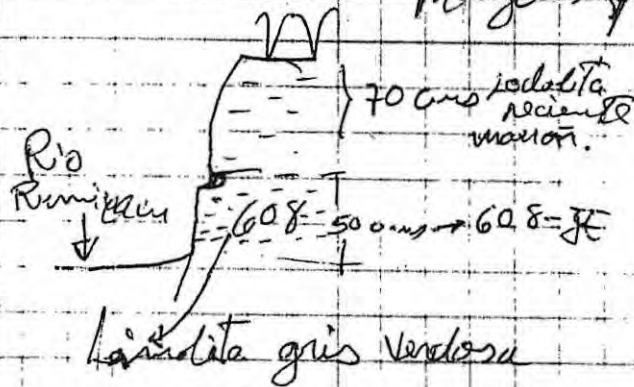 70 cms lodolita
reciente
marron.
Río
608
50 cms → 608 =
Limolita gris verdosa